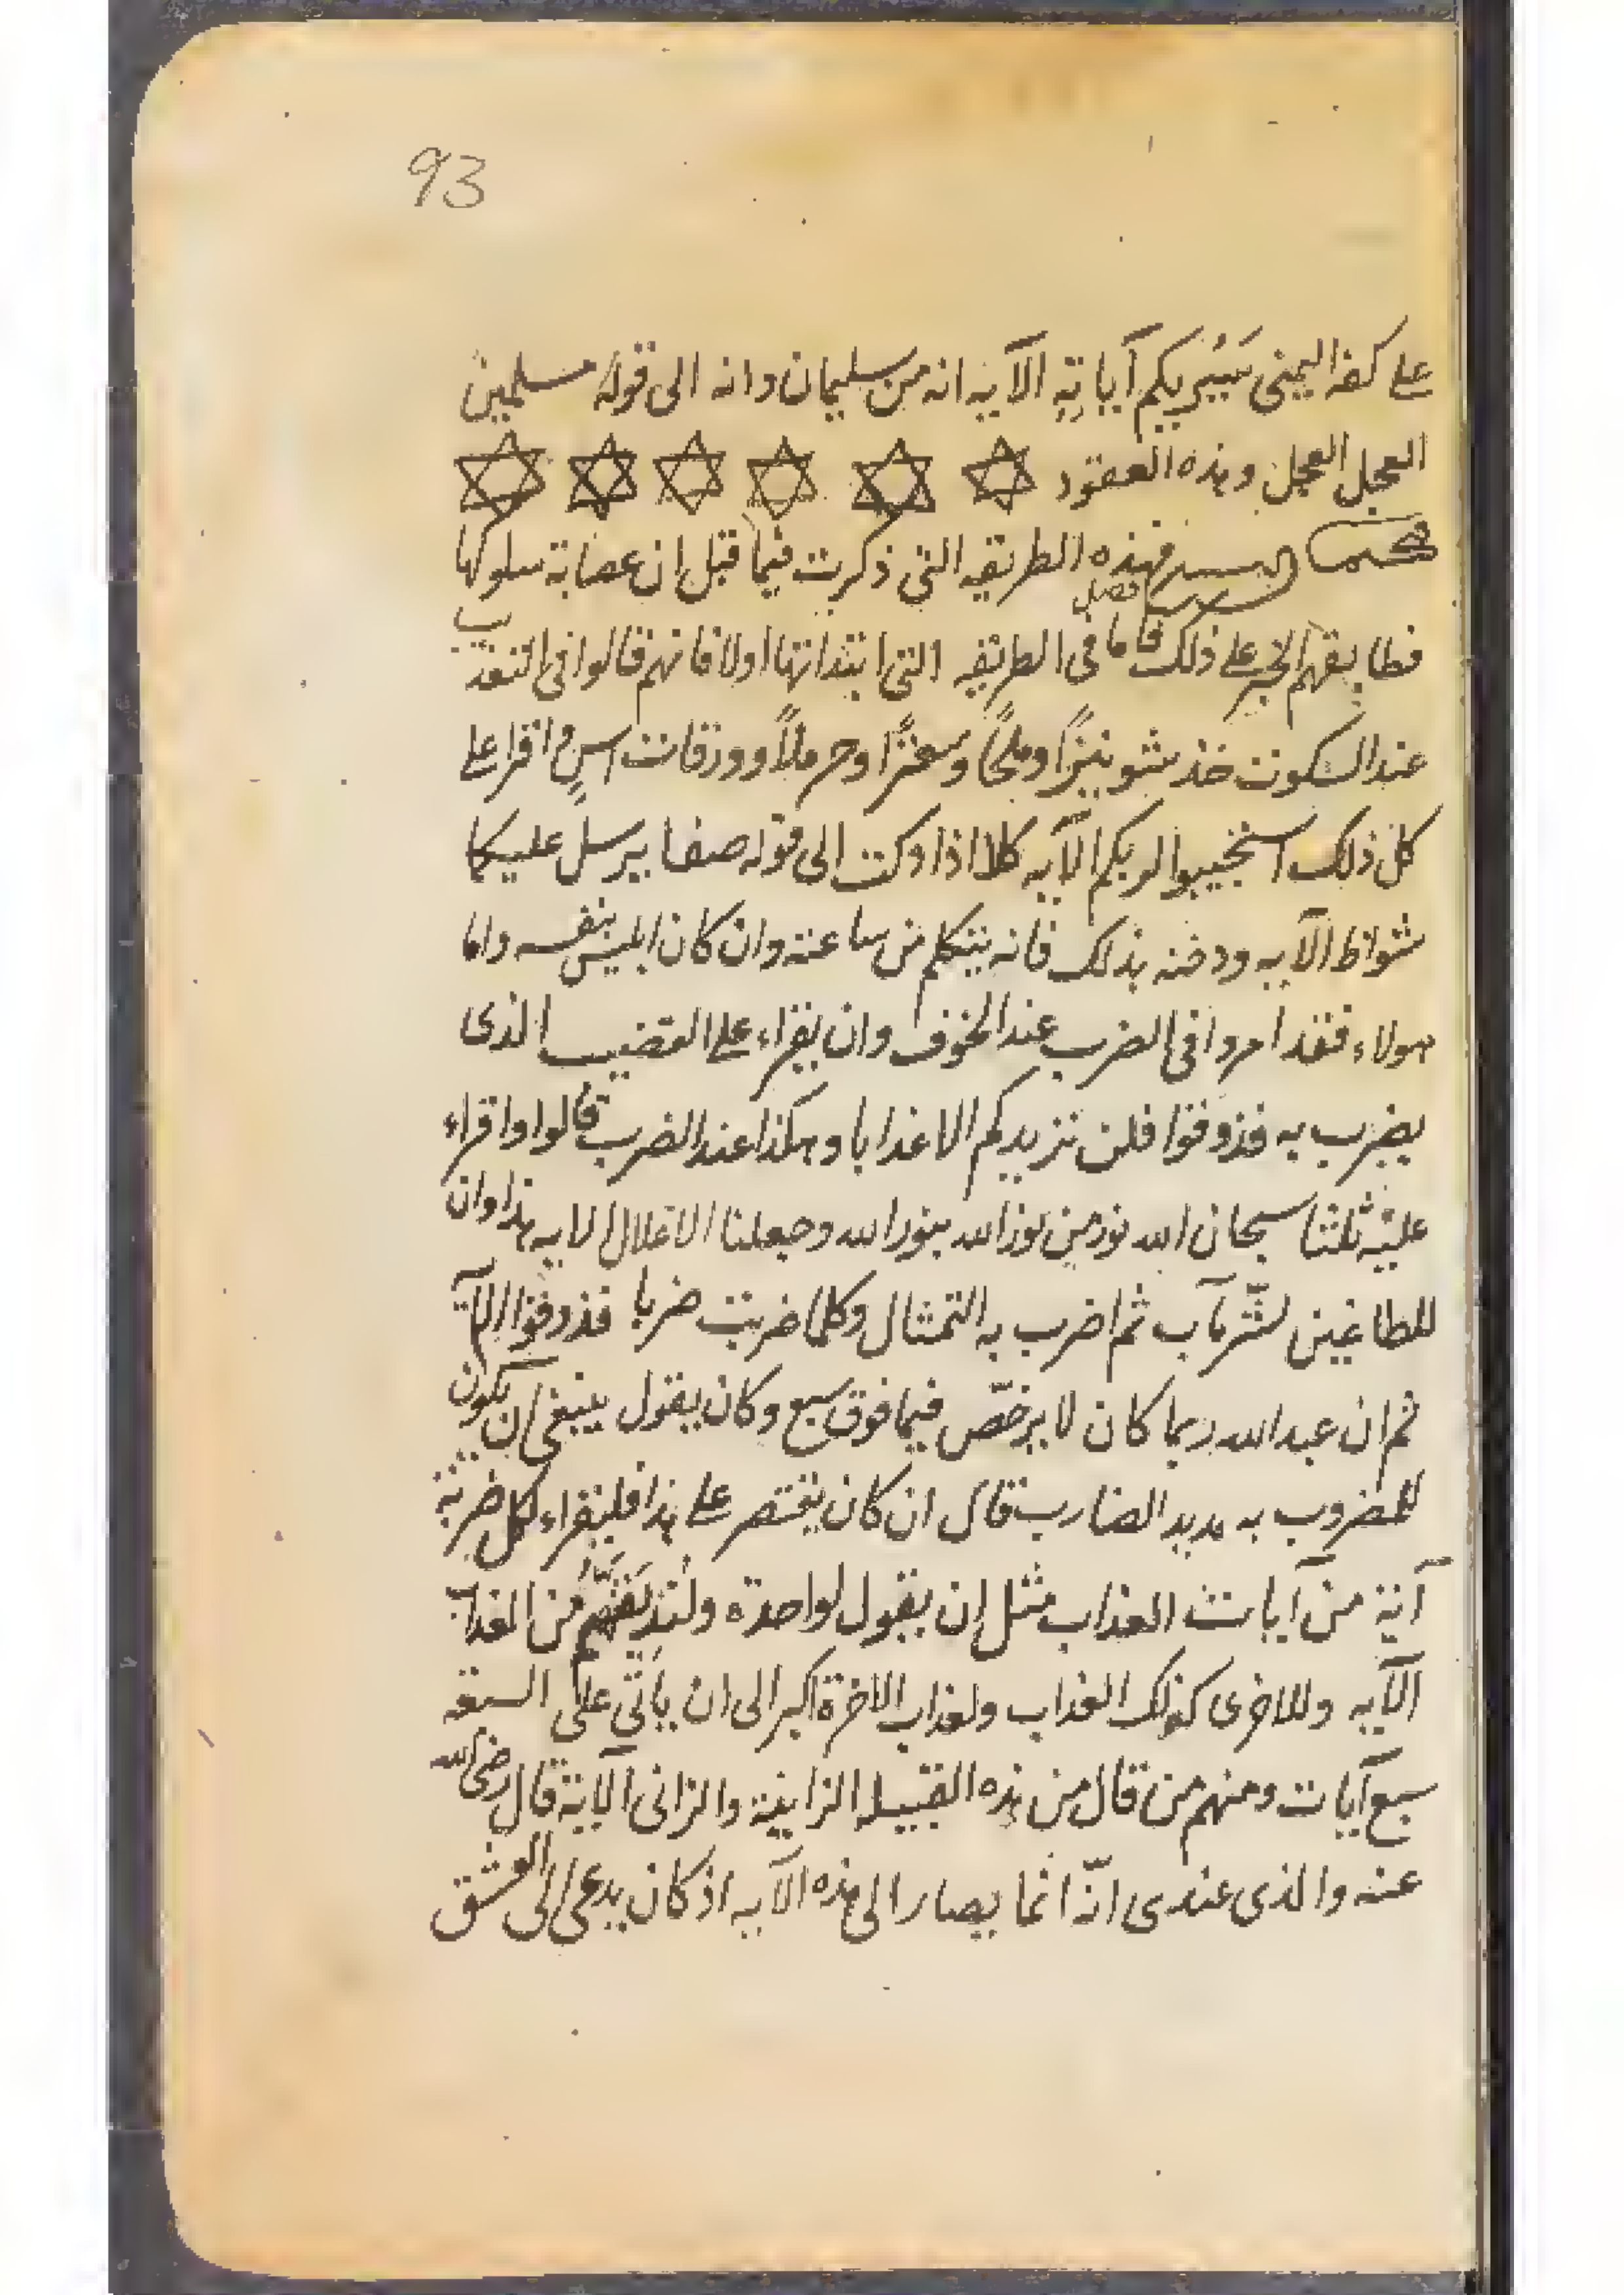 93
على كفه اليمنى سَيُرِيكم آياتِهِ الآيه انه من سليمان وانه الى قوله مسلمين
العجل العجل وهذه العقود
فهذه الطريقه التى ذكرت فيما قبل ان عصابة سلوكها
فطابقهم الخبر على ذلك فصل فاما فى الطريقه التى ابتداتها اولا فانهم قالوا فى التعذيب
عند السكوت خذ شونيزًا وملحًا وسعترًا وحرملاً وورقات اسٍ واقرا على
كل ذلك استجيبوا لربكم الآيه كلا اذا دكت الى قوله صفا يرسل عليكما
شواظ الآيه ودخنه بذلك فانه يتكلم من ساعته وان كان ابليس بنفسه واما
هولاء فقد امروا فى الضرب عند الخوف وان يقراء على القضيب الذى
يضرب به فذوقوا فلن نزيدكم الا عذابا وهكذا عند الضرب قالوا واقراء
عليه ثلثا سبحان الله نور من نور الله بنور الله وجعلنا الاغلال الايه هذا وان
للطاغين لشّر مآب ثم اضرب به التمثال وكلما ضربت ضربا فذوقوا الآية
ثم ان عبد الله ربما كان لا يرخّص فيما فوق سبع وكان يقول ينبغى ان يكون
للمضروب به الضارب قال ان كان يقتصر على هذا فليقراء لكل ضربة
آية من آيات العذاب مثل ان يقول لواحدة ولنُذِيقَنَّهُم من العذاب
الآيه وللاخرى كذلك العذاب ولعذاب الاخرة اكبر الى ان يأتى على
سبع آيات ومنهم من قال من هذه القبيله الزانية والزانى الآية قال رضى الله
عنه والذى عندى انّه انما يصار الى هذه الآيه اذ كان يدعى الى العشق